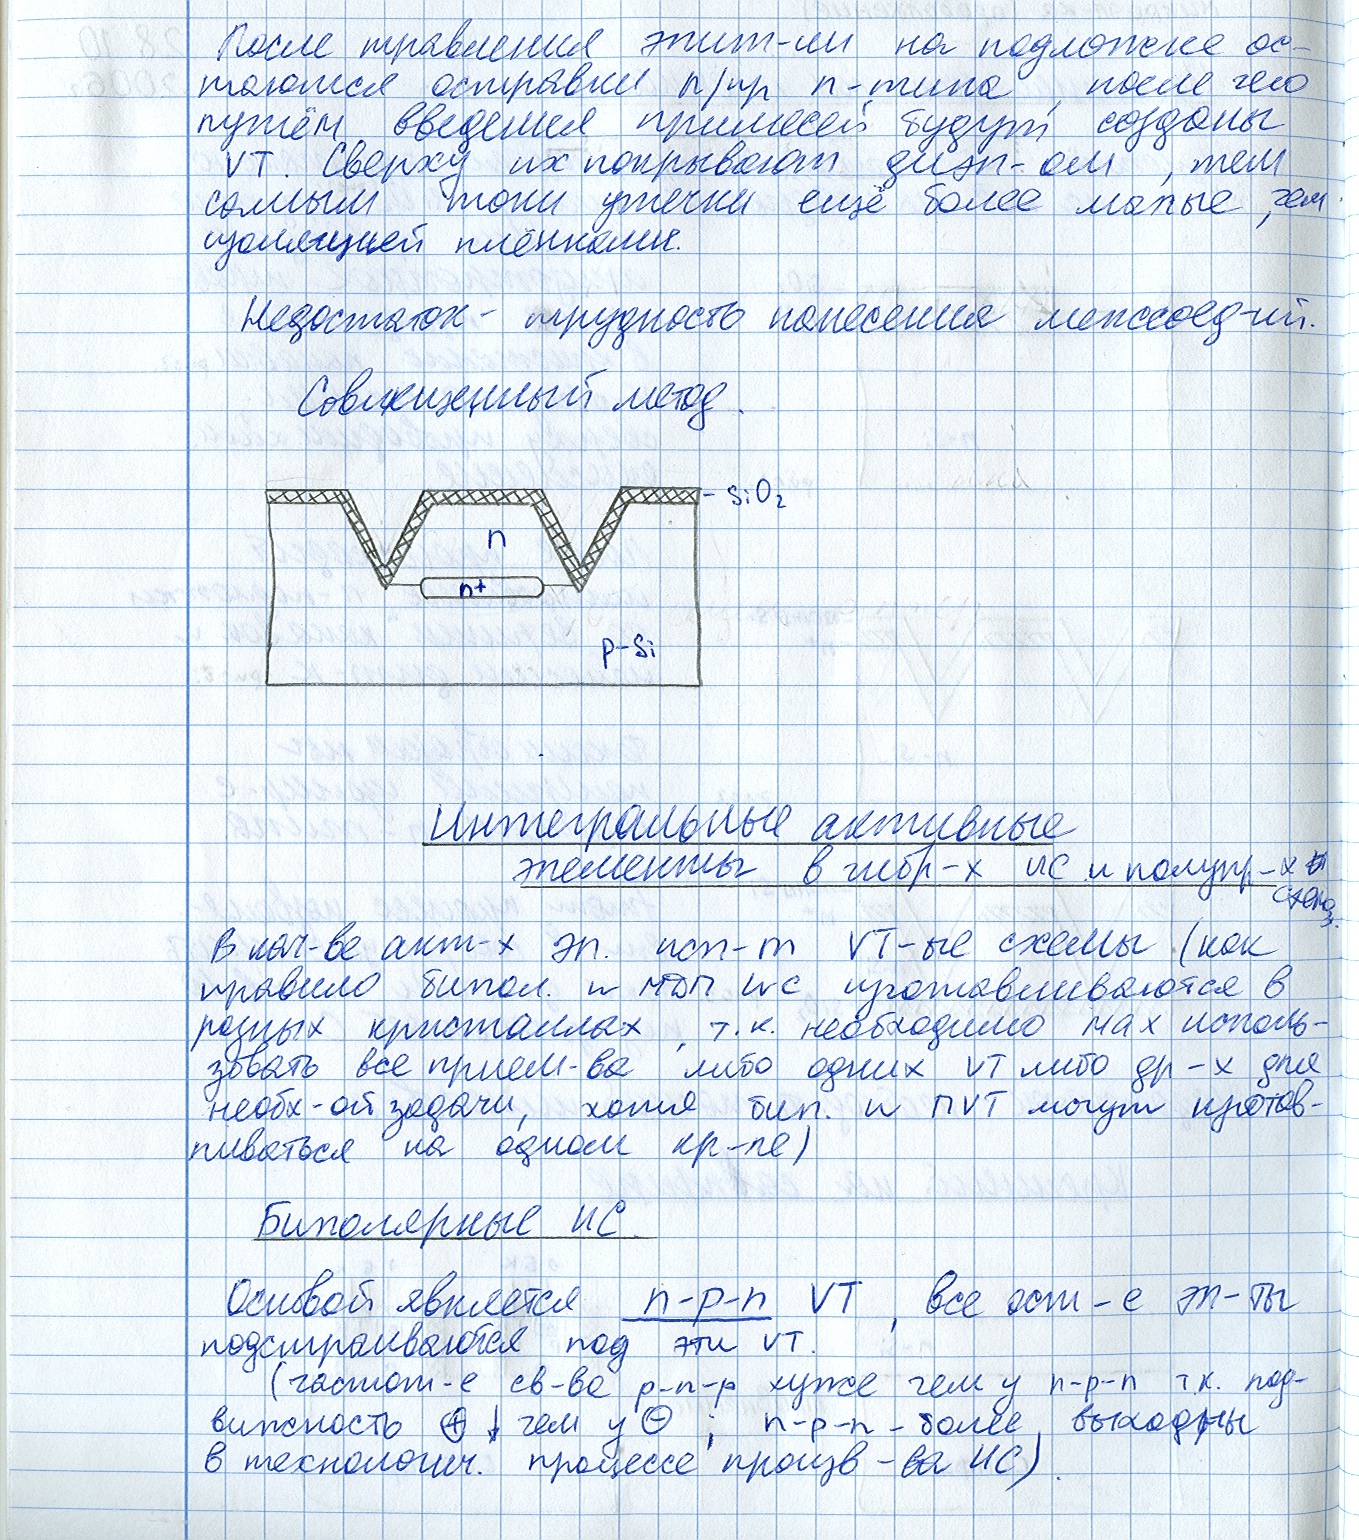 После травления эпит-ии на подложке ос-
таются островки п/пр n-типа, после чего
путём введения примесей будут созданы
VT. Сверху их покрывают диэл-ом, тем
самым токи утечки ещё более малые, чем
изоляцией плёнками.
Недостаток - трудность нанесения межсоед-ий.
Совмещенный метод.
- SiO2
n
n+
p-Si
Интегральные активные
элементы в гибр-х ИС и полупр-х
схемах.
В кач-ве акт-х эл. исп-т VT-ые схемы (как
правило бипол. и МДП ИС изготавливаются в
разных кристаллах, т.к. необходимо max исполь-
зовать все прием-ва либо одних VT либо др-х для
необх-ой задачи, хотя бип. и ПVT могут изготав-
ливаться на одном кр-ле)
Биполярные ИС.
Основой является n-p-n VT, все ост-е эл-ты
подстраиваются под эти VT.
(частот-е св-ва p-n-p хуже чем у n-p-n т.к. под-
вижность ⊕ ↓ чем у ⊖; n-p-n - более выходны
в технологич. процессе произв-ва ИС).